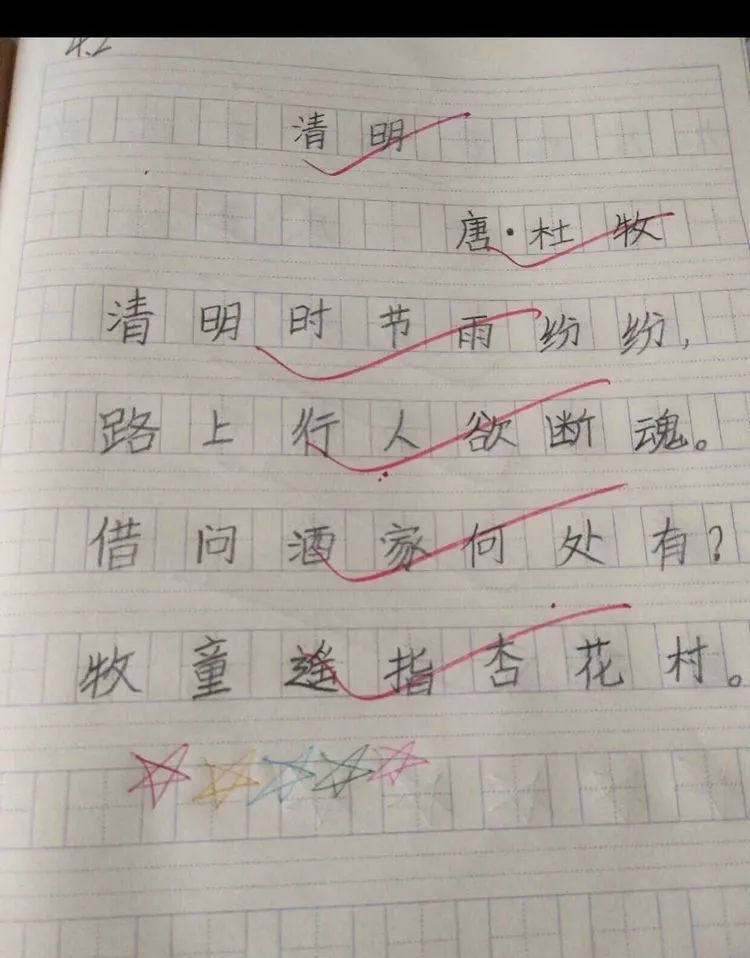 4.2
清明
唐·杜牧
清明时节雨纷纷,
路上行人欲断魂。
借问酒家何处有?
牧童遥指杏花村。